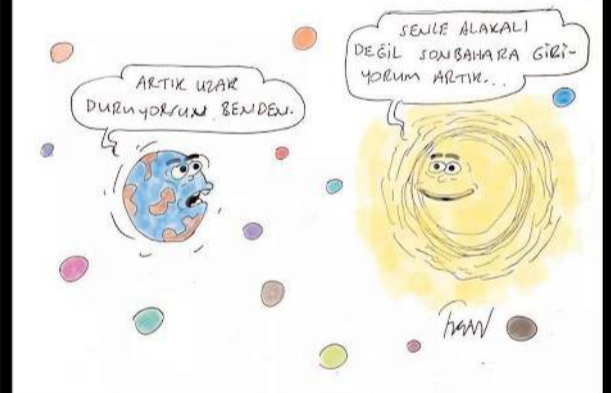 ARTIK UZAK
DURUYORSUN BENDEN.
SENLE ALAKALI
DEĞİL SONBAHARA GİRİ-
YORUM ARTIK...